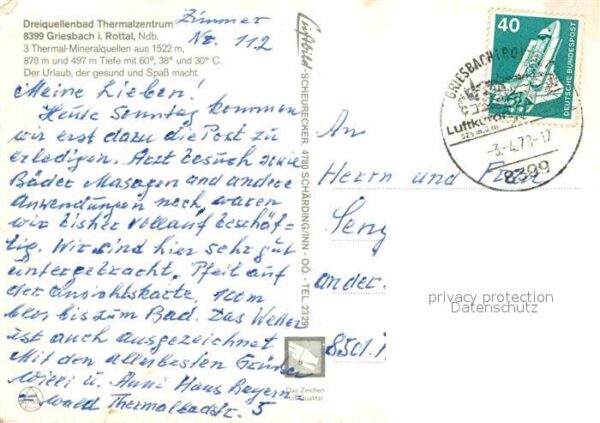 Dreiquellenbad Thermalzentrum
8399 Griesbach i. Rottal, Ndb.
3 Thermal-Mineralquellen aus 1522 m,
878 m und 497 m Tiefe mit 60°, 38° und 30° C.
Der Urlaub, der gesund und Spaß macht.
Zimmer
Nr. 112
Meine Lieben!
Heute Sonntag kommen
wir erst dazu die Post zu
erledigen. Arzt besuch sowie
Bäder Masagen und andere
Anwendungen noch, waren
wir bisher vollauf beschäf-
tig. Wir sind hier sehr gut
untergebracht. Pfeil auf
der Ansichtskarte, 100m
bis zum Bad. Das Wetter
ist auch ausgezeichnet
Mit den allerbesten Grüßen
Willi u. Anni Haus Bayern
wald Thermalbadstr. 5
Luftbild SCHEURECKER, 4780 SCHÄRDING/INN - OÖ. - TEL. 2329
Das Zeichen
für Qualität
An
Herrn und Frau
Seng
ander
8501
40
DEUTSCHE BUNDESPOST
GRIESBACH I ROT
Luftkurort
525 m.ü.m.
-3.-4.78-17
8399
privacy protection
Datenschutz